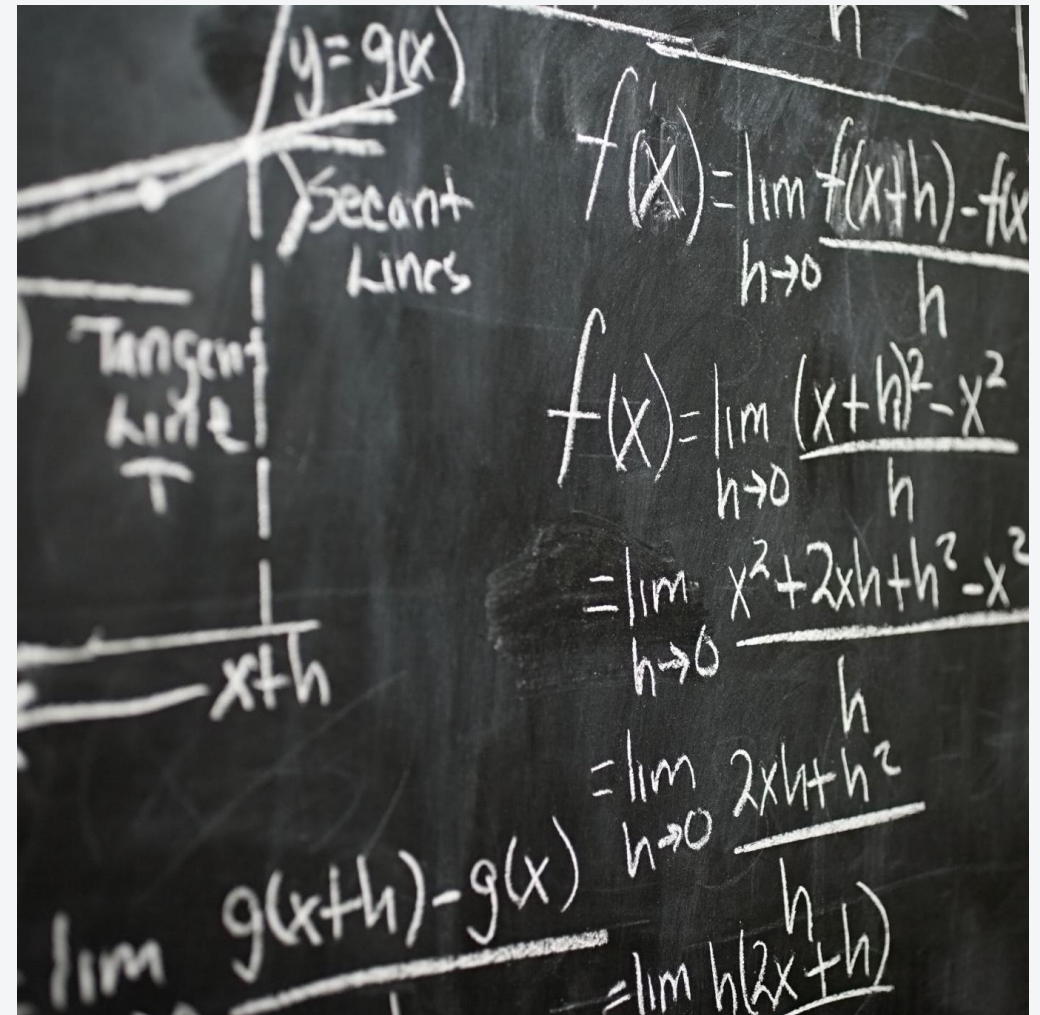 y = g(x)
Secant
Lines
Tangent
Line
T
x+h
lim g(x+h) - g(x)
h
f'(x) = lim f(x+h) - f(x
h→0 h
f(x) = lim (x+h)² - x²
h→0 h
= lim x² + 2xh + h² - x²
h→0 h
= lim 2xh + h²
h→0 h
= lim h(2x+h)